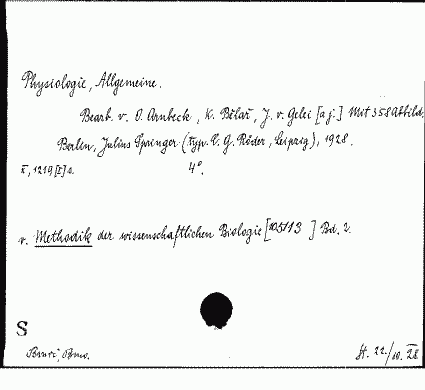 Physiologie, Allgemeine.
Bearb. v. O. Arnbeck, K. Bělař, J. v. Gelei [a j.] Mit 358 Abbild.
Berlin, Julius Springer (Typ. C. G. Röder, Leipzig), 1928.
X, 1219 [I] s. 4°.
v. Methodik der wissenschaftlichen Biologie [105113 ] Bd. 2.
S
Brno.
St. 22./10. 28